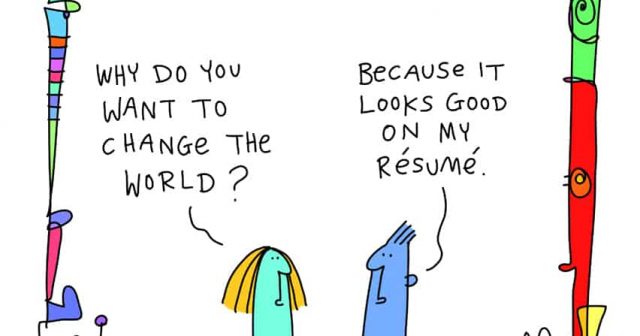 WHY DO YOU
WANT TO
CHANGE THE
WORLD?
BECAUSE IT
LOOKS GOOD
ON MY
RÉSUMÉ.